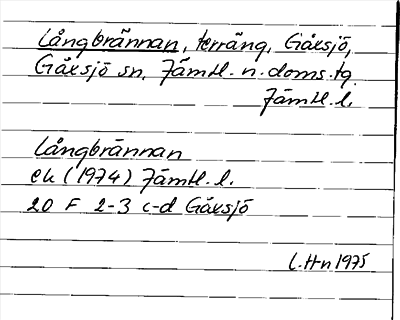 Långbrännan, terräng, Gåxsjö,
Gåxsjö sn. Jämtl. n. doms. tg.
Jämtl. l.
Långbrännan
ek (1974) Jämtl. l.
20 F 2-3 c-d Gåxsjö
L.Hn 1975